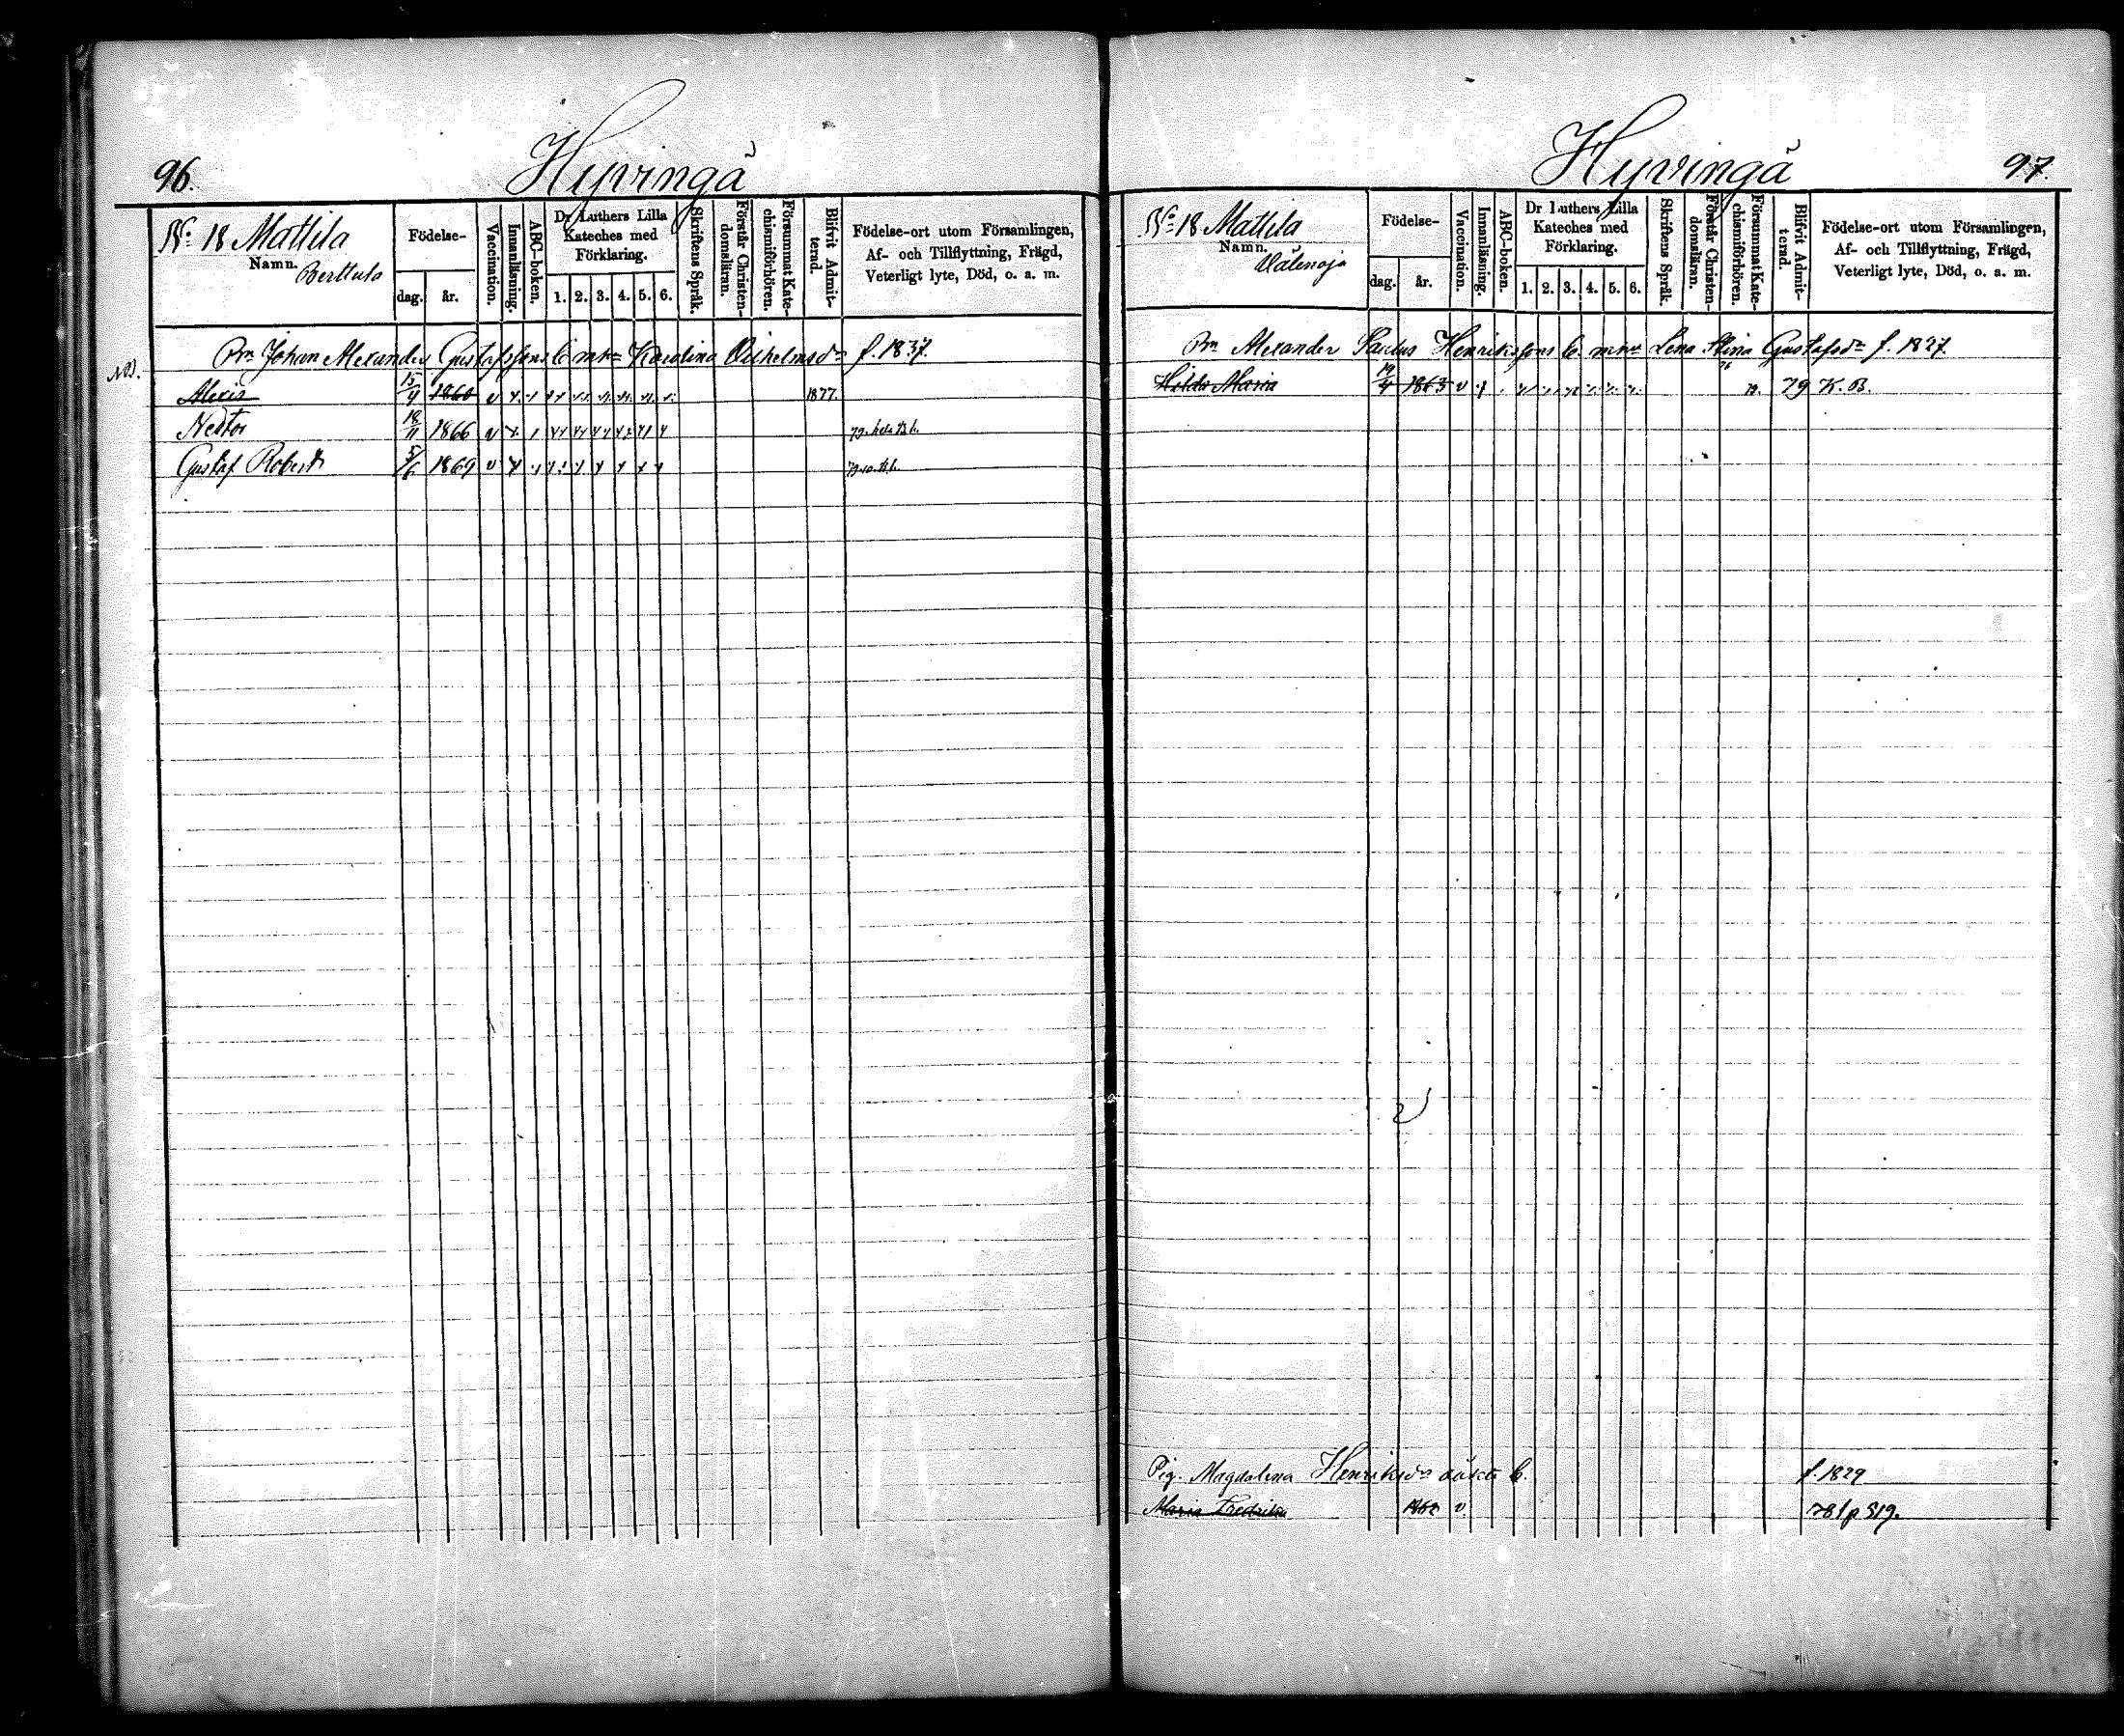 96.
Hyvingä
No 18 Mattila
Namn.
Berttula
Födelse-
dag.
år.
Vaccination.
Innanläsning.
ABC-boken.
Dr Luthers Lilla
Kateches med
Förklaring.
1. 2. 3. 4. 5. 6.
Skriftens Språk.
Förstår Christen-
domsläran.
Försummat Kate-
chismiförhören.
Blifvit Admit-
terad.
Födelse-ort utom Församlingen,
Af- och Tillflyttning, Frägd,
Veterligt lyte, Död, o. a. m.
Bn Johan Alexander Gustafssons b. m. Karolina Wilhelmsd. f. 1837.
NB.
Alexis 15/4 1860 v 1877.
Nestor 18/11 1866 v
Gustaf Robert 5/6 1869 v
97.
Hyvingä
No 18 Mattila
Namn.
Välenoja
Födelse-
dag.
år.
Vaccination.
Innanläsning.
ABC-boken.
Dr Luthers Lilla
Kateches med
Förklaring.
1. 2. 3. 4. 5. 6.
Skriftens Språk.
Förstår Christen-
domsläran.
Försummat Kate-
chismiförhören.
Blifvit Admit-
terad.
Födelse-ort utom Församlingen,
Af- och Tillflyttning, Frägd,
Veterligt lyte, Död, o. a. m.
Bn Alexander Henrikssons b. m. Lena Stina Gustafsd. f. 1827.
Hilda Maria 19/4 1863 v 79 K. B.
Pig. Magdalena Henriksd. b. f. 1829
Maria Fredrika v 78/p 519.